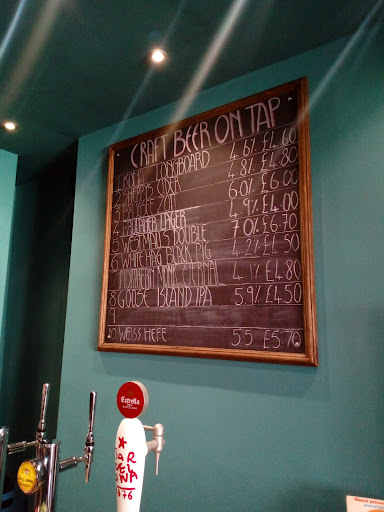 CRAFT BEER ON TAP
LONGBOARD 4.6% £4.60
CIDER 4.8% £4.80
6.0% £6.00
4 LAGER 4.9% £4.00
5 WESTMALLE DOUBLE 7.0% £6.70
6 WHITE HAG BLACK PIG 4.2% £4.50
7 NORTHERN MONK ETERNAL 4.1% £4.80
8 GOOSE ISLAND IPA 5.9% £4.50
9
10 WEISS HEFE 5.5 £5.70
Estrella
BAR
CEL
ONA
1876